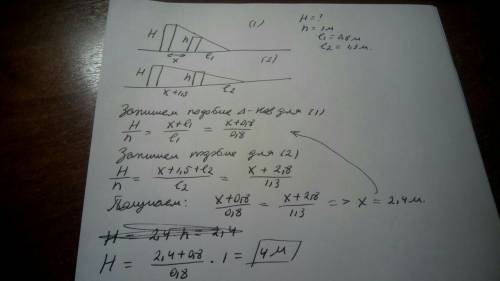 (1)
H h x l₁
H = ?
h = 1м
l₁ = 0,8м
l₂ = 1,3 м.
(2)
H h x+1,5 l₂
Запишем подобие Δ-ков для (1)
H/h = (x+l₁)/l₁ = (x+0,8)/0,8
Запишем подобие для (2)
H/h = (x+1,5+l₂)/l₂ = (x+2,8)/1,3
Получаем: (x+0,8)/0,8 = (x+2,8)/1,3 => x = 2,4 м.
H = 2,4 h = 2,4
H = (2,4+0,8)/0,8 · 1 = 4 м